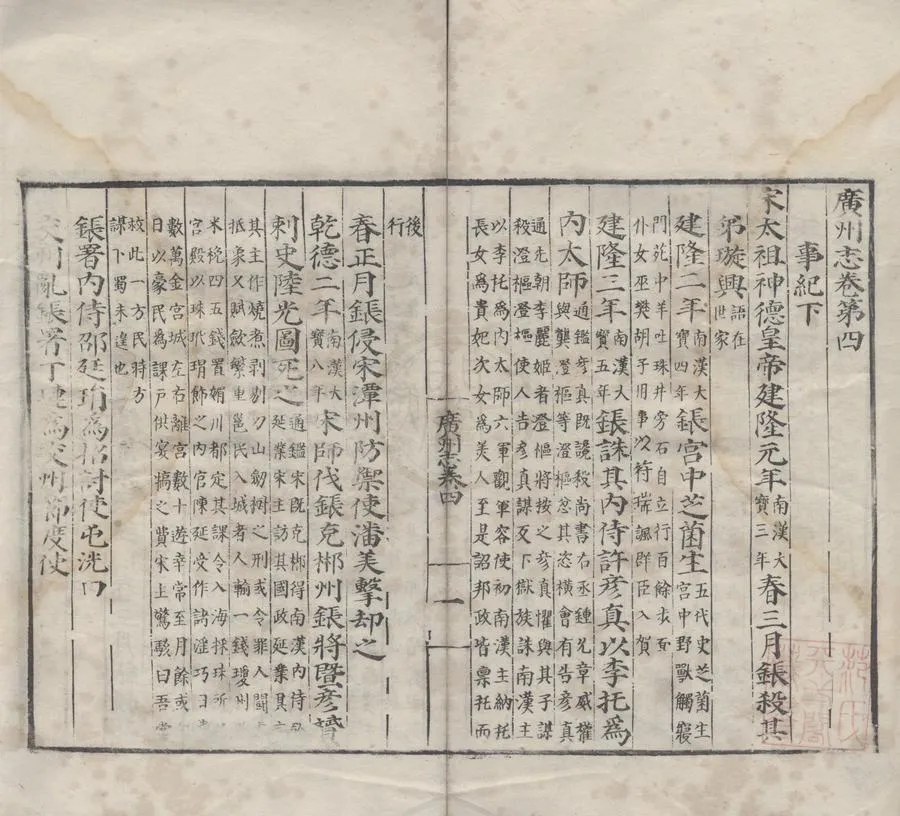 廣州志卷第四
事紀下
宋太祖神德皇帝建隆元年南漢大寶三年春三月鋹殺其
弟璇興語在世家
建隆二年南漢大寶四年鋹宮中芝菌生五代史芝菌生宮中野獸觸寢
門苑中羊吐珠井旁石自立行百餘步而
仆女巫樊胡子用事以符瑞諷群臣入賀
建隆三年南漢大寶五年鋹誅其內侍許彥真以李托爲
內太師通鑑彥真既譖殺尚書右丞鍾允章威權與龔澄樞等澄樞忿其恣橫會有告彥真
通先朝李麗姬者澄樞將按之彥真懼與其子謀
殺澄樞澄樞使人告彥真謀反下獄族誅南漢主
以李托爲內太師六軍觀軍容使初南漢主納托
長女爲貴妃次女爲美人至是詔邦政皆禀托而
廣州志卷四
一
後行
春正月鋹侵宋潭州防禦使潘美擊却之
乾德二年南漢大寶八年宋師伐鋹克郴州鋹將曁彥贇
刺史陸光圖死之通鑑宋既克郴得南漢內侍延業宋主訪其國政延業具言
其主作燒煮剥剔刀山劒樹之刑或令罪人鬬
抵象又賦歛繁重邕民入城者人輸一錢瓊州
米稅四五錢置媚川都定其課令入海採珠所
宮殿以珠玳瑁飾之內官陳延受作諸淫巧日
數萬金宮城左右離宮數十遊幸常至月餘或
日以豪民爲課戶供宴犒之費宋主驚駭曰吾當
救此一方民時方
謀下蜀未遑也
鋹署內侍邵廷琄爲招討使屯洸口
交州亂鋹署丁璉爲交州節度使